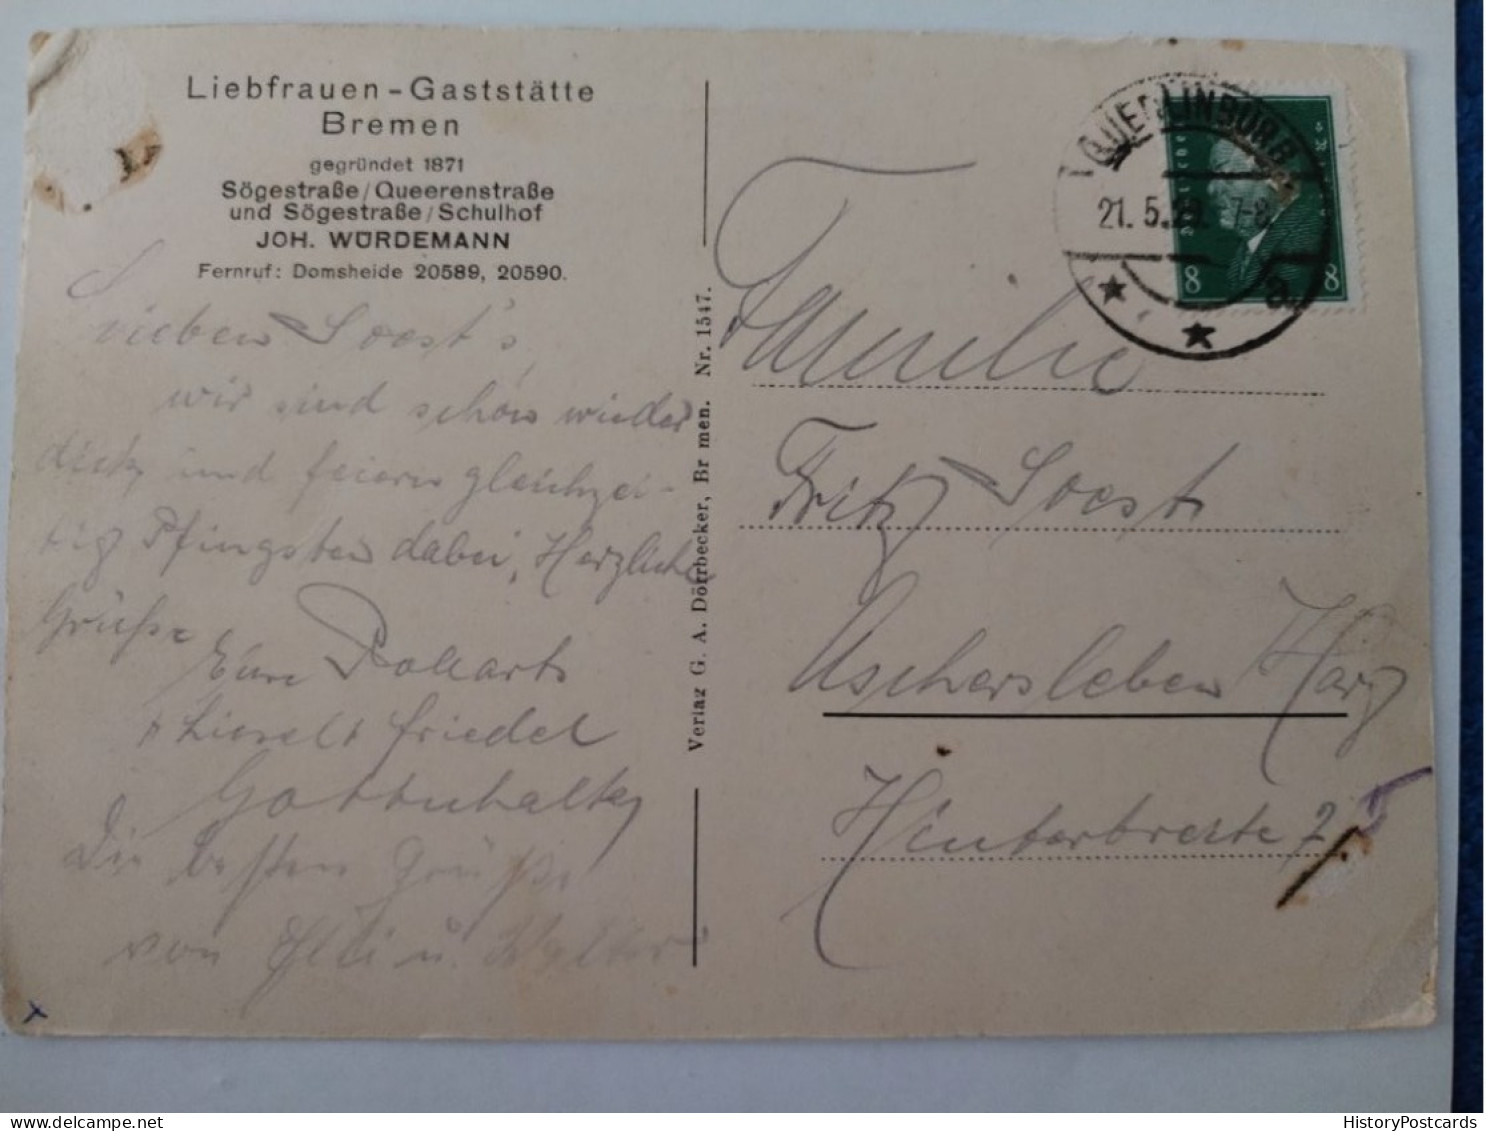 Liebfrauen-Gaststätte
Bremen
gegründet 1871
Sögestraße/Queerenstraße
und Sögestraße/Schulhof
JOH. WÜRDEMANN
Fernruf: Domsheide 20589, 20590.
Lieben Soest's,
wir sind schon wieder
und feiern gleichzei-
tig Pfingsten dabei, Herzliche
Grüße
Eure
+ Liesel + Friedel
Die besten Grüße
von Elli u. Walter
Verlag G. A. Dörrbecker, Br men. Nr. 1547.
QUEDLINBURG
21. 5. 29. 7-8
a
8 8
Familie
Fritz Soest
Aschersleben Harz
Hinterbreite 2
HistoryPostcards
delcampe.net